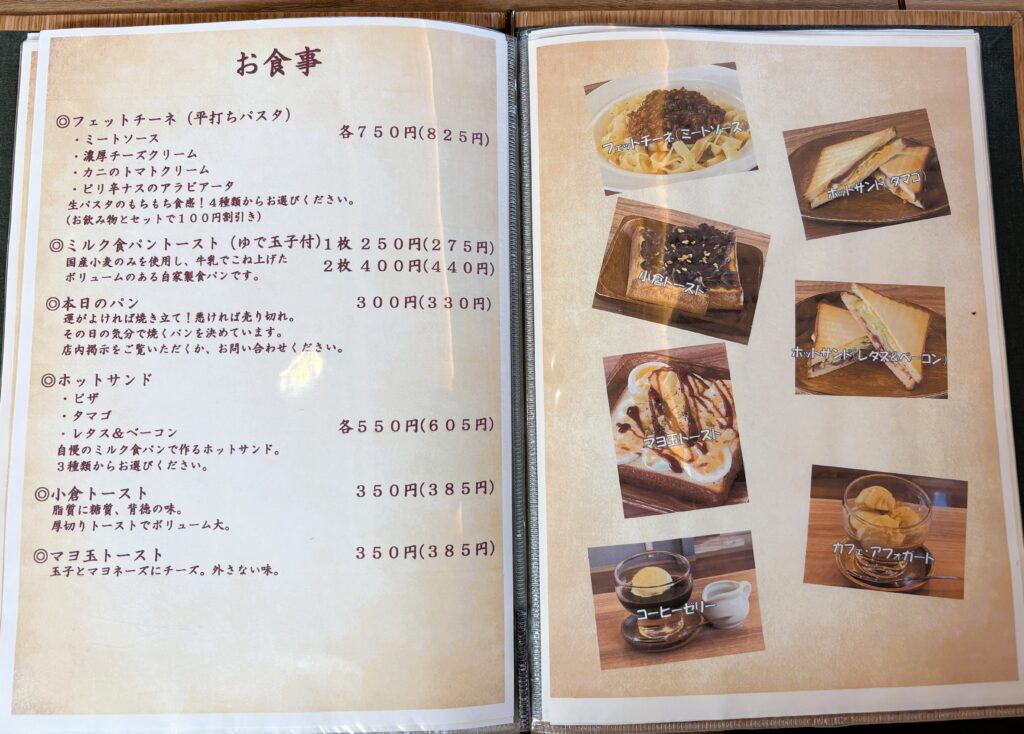 お食事
◎フェットチーネ（平打ちパスタ）
・ミートソース 各７５０円(８２５円)
・濃厚チーズクリーム
・カニのトマトクリーム
・ピリ辛ナスのアラビアータ
生パスタのもちもち食感！４種類からお選びください。
(お飲み物とセットで１００円割引き)
◎ミルク食パントースト（ゆで玉子付）１枚 ２５０円(２７５円)
国産小麦のみを使用し、牛乳でこね上げた
２枚 ４００円(４４０円)
ボリュームのある自家製食パンです。
◎本日のパン ３００円(３３０円)
運がよければ焼き立て！悪ければ売り切れ。
その日の気分で焼くパンを決めています。
店内掲示をご覧いただくか、お問い合わせください。
◎ホットサンド
・ピザ
・タマゴ
・レタス＆ベーコン 各５５０円(６０５円)
自慢のミルク食パンで作るホットサンド。
３種類からお選びください。
◎小倉トースト ３５０円(３８５円)
脂質に糖質、背徳の味。
厚切りトーストでボリューム大。
◎マヨ玉トースト ３５０円(３８５円)
玉子とマヨネーズにチーズ。外さない味。
フェットチーネ（ミートソース）
ホットサンド（タマゴ）
小倉トースト
ホットサンド（レタス&ベーコン）
マヨ玉トースト
カフェ・アフォガード
コーヒーゼリー